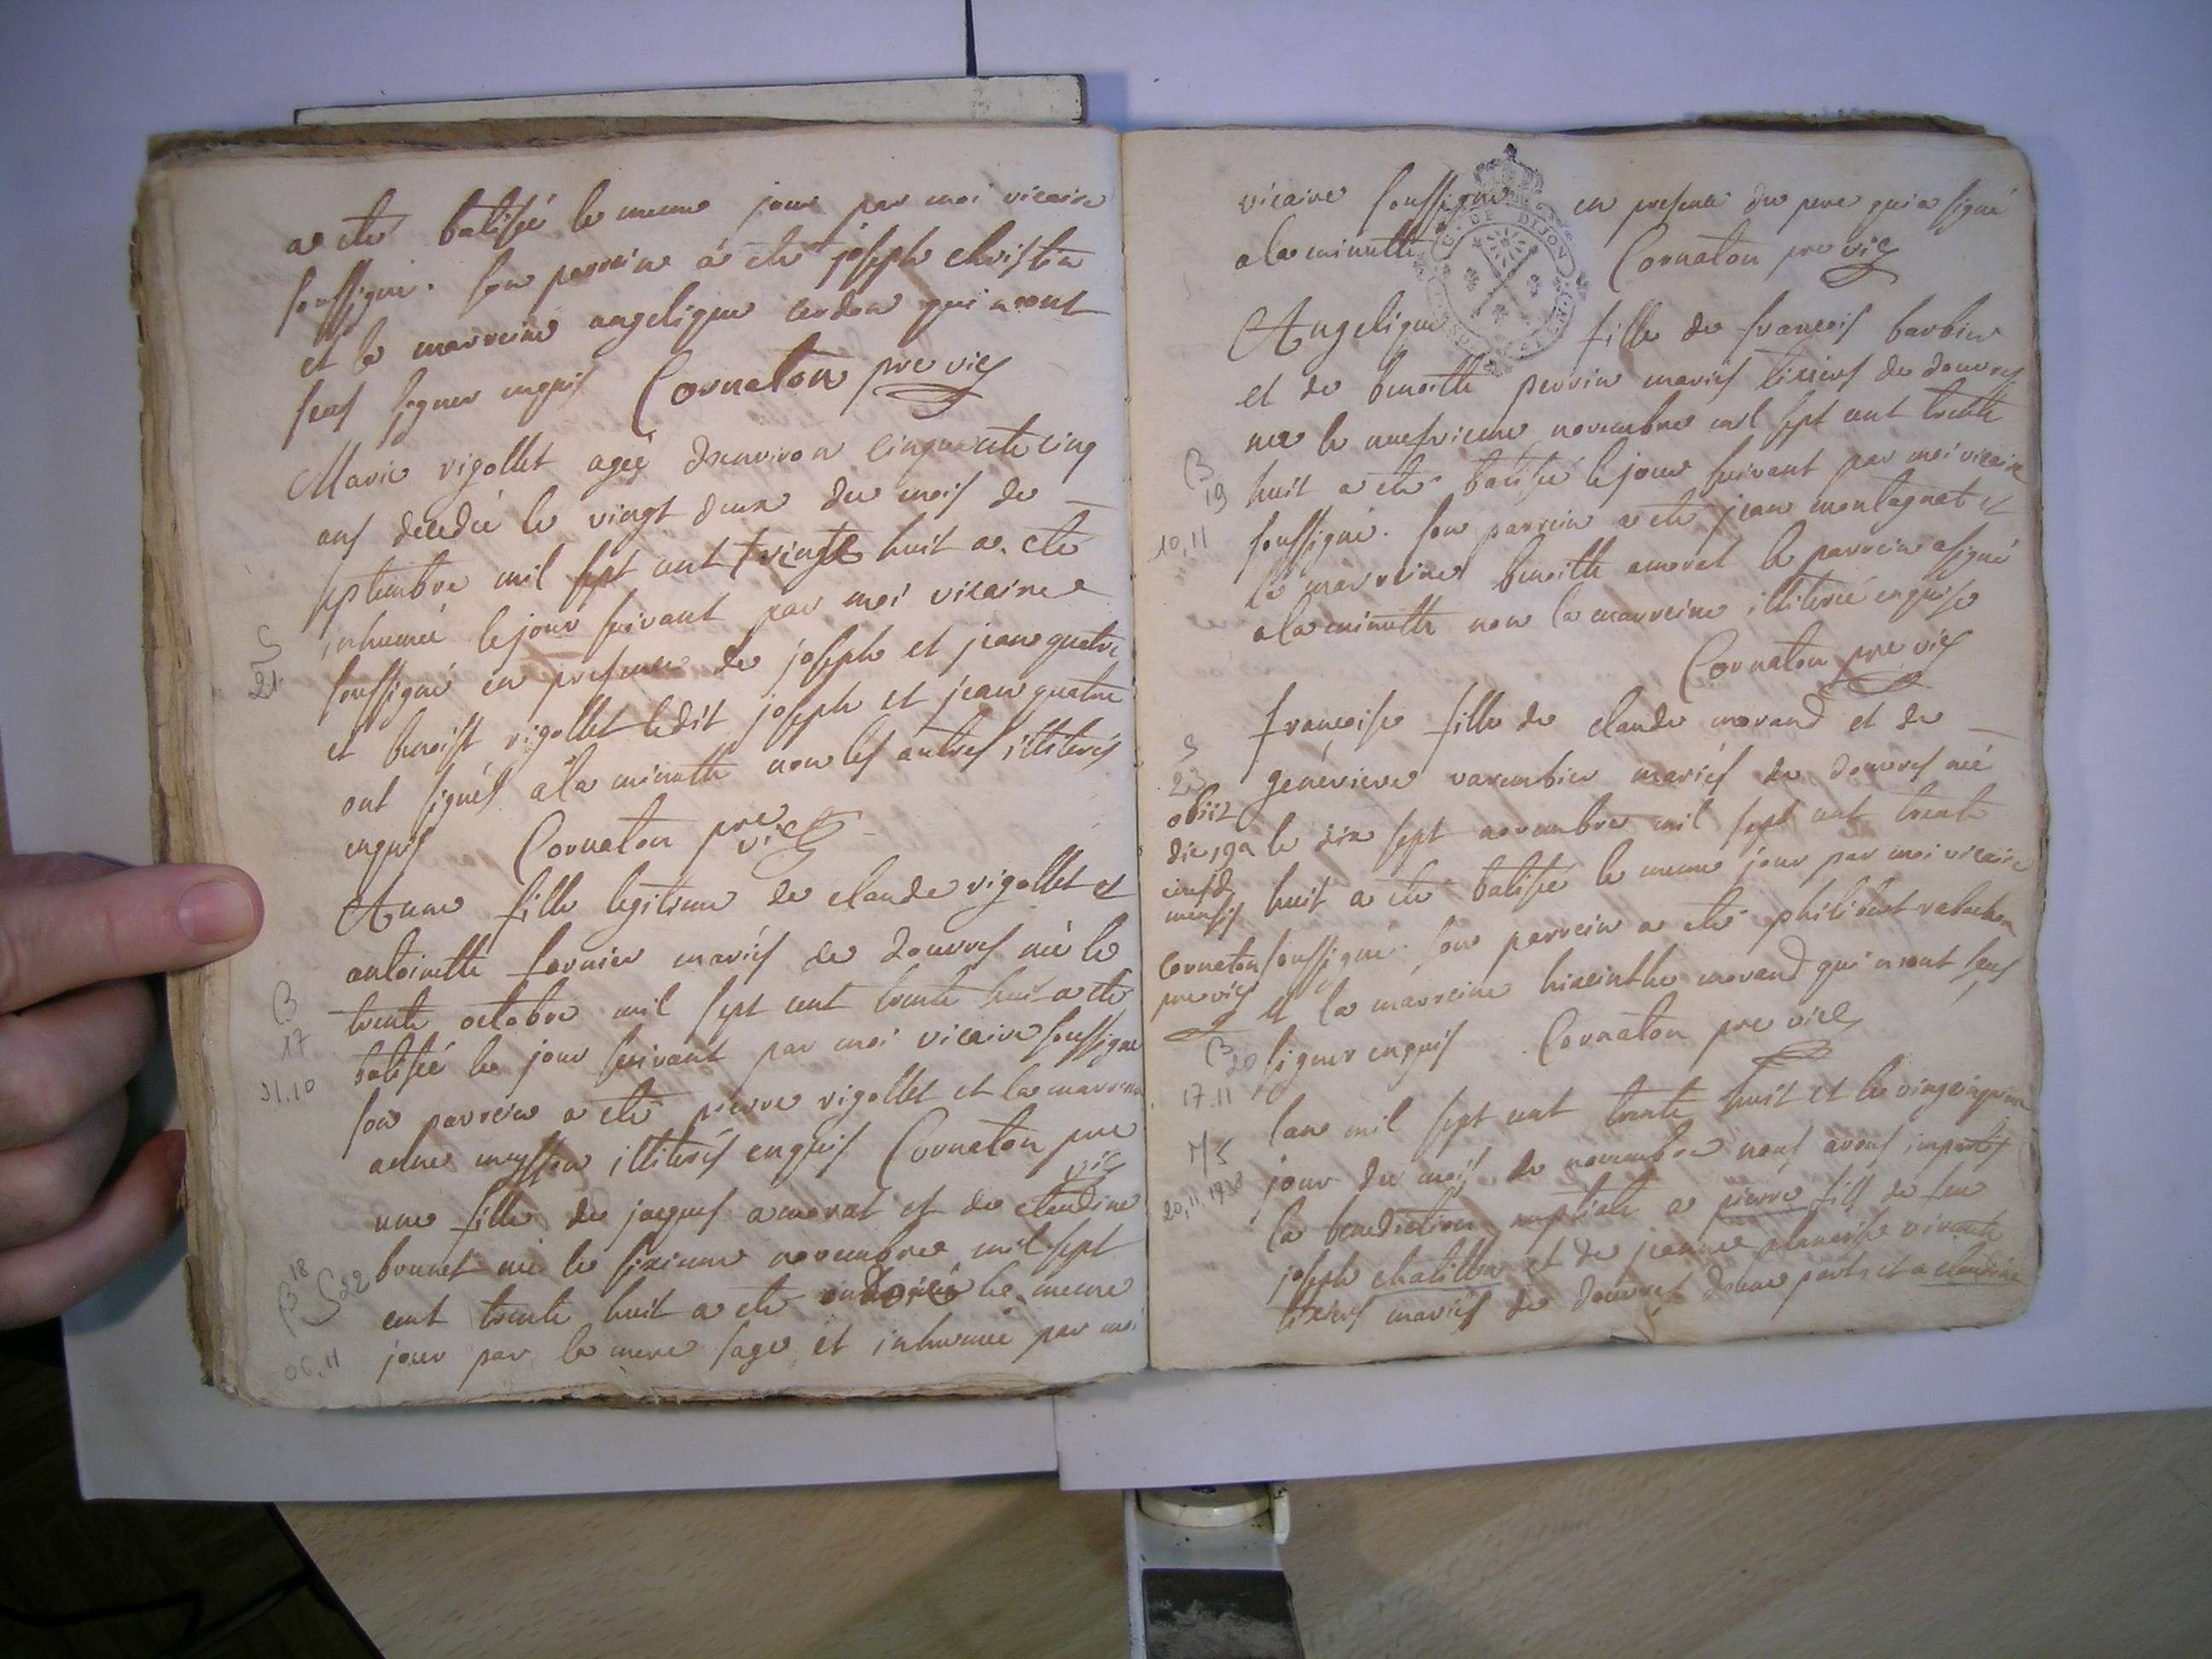 a ete batisée le meme jour par moi vicaire
soussigné. son parrein a ete joseph christin
et la marreine angelique cerdon qui n'ont
seus signer enquis Cornaton pre vic
Marie vigollet agée d'environ cinquante cinq
ans decedée le vingt deux du mois de
septembre mil sept cent trente huit a ete
inhumée le jour suivant par moi vicaire
soussigné en presence de joseph et jean quatre
et benoist vigollet ledit joseph et jean quatre
ont signés a la minutte non les autres illiterés
enquis Cornaton pre vic
S
21
Anne fille legitime de claude vigollet et
antoinette fornier mariés de douvres née le
trente octobre mil sept cent trente huit a ete
batisée le jour suivant par moi vicaire soussigné
son parrein a ete pierre vigollet et la marreine
illiterés enquis Cornaton pre
vic
B
17
31.10
une fille de jacques amorat et de claudine
brunet née le sixieme novembre mil sept
cent trente huit a ete ondoiée le meme
jour par la mere sage et inhumée par moi
B 18
S 22
06.11
vicaire soussigné en presence du pere qui a signé
a la minutte Cornaton pre vic
G. DE DIJON
Angelique fille de francois barbier
et de benoitte perrin mariés de douvres
née le neufvieme novembre mil sept cent trente
huit a ete batisée le jour suivant par moi vicaire
soussigné. son parrein a ete jean montagnat et
la marreine benoitte amorat le parrein a signé
a la minutte non la marreine illiterée enquise
Cornaton pre vic
B
19
10.11
francoise fille de claude morand et de
genevieve varembier mariés de douvres née
le dix sept novembre mil sept cent trente
huit a ete batisée le meme jour par moi vicaire
soussigné. son parrein a ete philibert
et la marreine hiacinthe morand qui n'ont seus
signer enquis Cornaton pre vic
S
23
obiit
die 19a
eiusd
mensis
cornaton
pre vic
B
20
17.11
lan mil sept cent trente huit et le
jour du mois de novembre nous avons imparti
la benediction nuptiale a pierre fils de feu
joseph chatillon et de jeanne vivante
mariés de douvres d'une part, et a claudine
M 5
20.11.1738